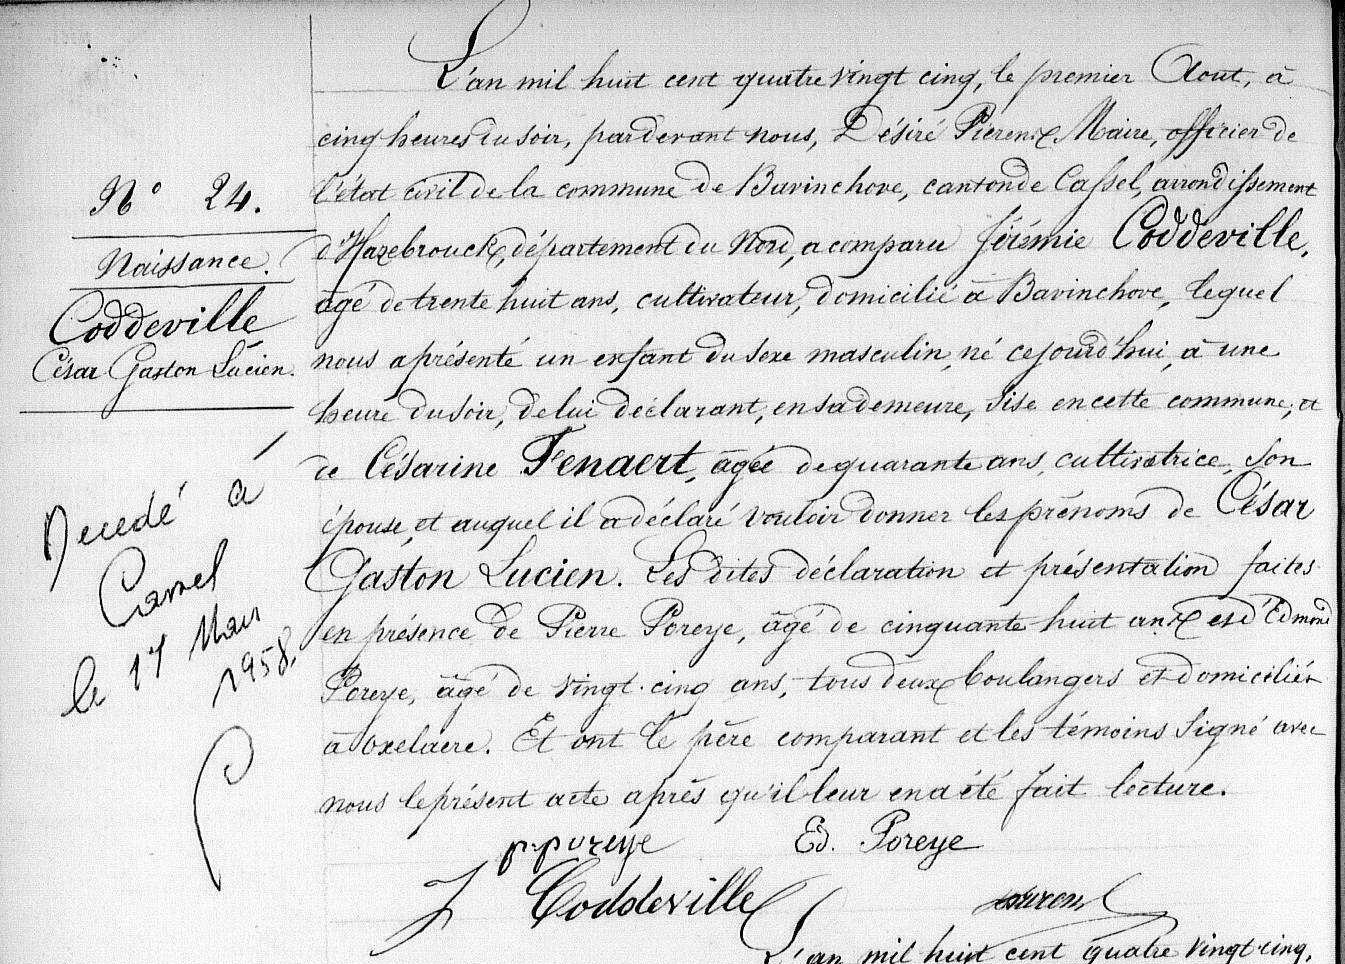 L'an mil huit cent quatre vingt cinq, le premier Aout, à
cinq heures du soir, pardevant nous, Désiré Pierens Maire, officier de
l'état civil de la commune de Bavinchove, canton de Cassel, arrondissement
d'Hazebrouck, département du Nord, a comparu Jérémie Coddeville,
âgé de trente huit ans, cultivateur, domicilié à Bavinchove, lequel
nous a présenté un enfant du sexe masculin, né cejourd'hui, à une
heure du soir, de lui déclarant, en sa demeure, sise en cette commune, et
de Césarine Fenaert, âgée de quarante ans, cultivatrice, son
épouse, et auquel il a déclaré vouloir donner les prénoms de César
Gaston Lucien. Les dites déclaration et présentation faites
en présence de Pierre Poreye, âgé de cinquante huit ans et d'Edmond
Poreye, âgé de vingt-cinq ans, tous deux boulangers et domiciliés
à Oxelaere. Et ont le père comparant et les témoins signé avec
nous le présent acte après qu'il leur en a été fait lecture.
N° 24.
Naissance.
Coddeville
César Gaston Lucien.
Décédé à
Cassel
le 17 Mars
1958.
p. poreye Ed. Poreye
J Coddeville
L'an mil huit cent quatre vingt-cinq,